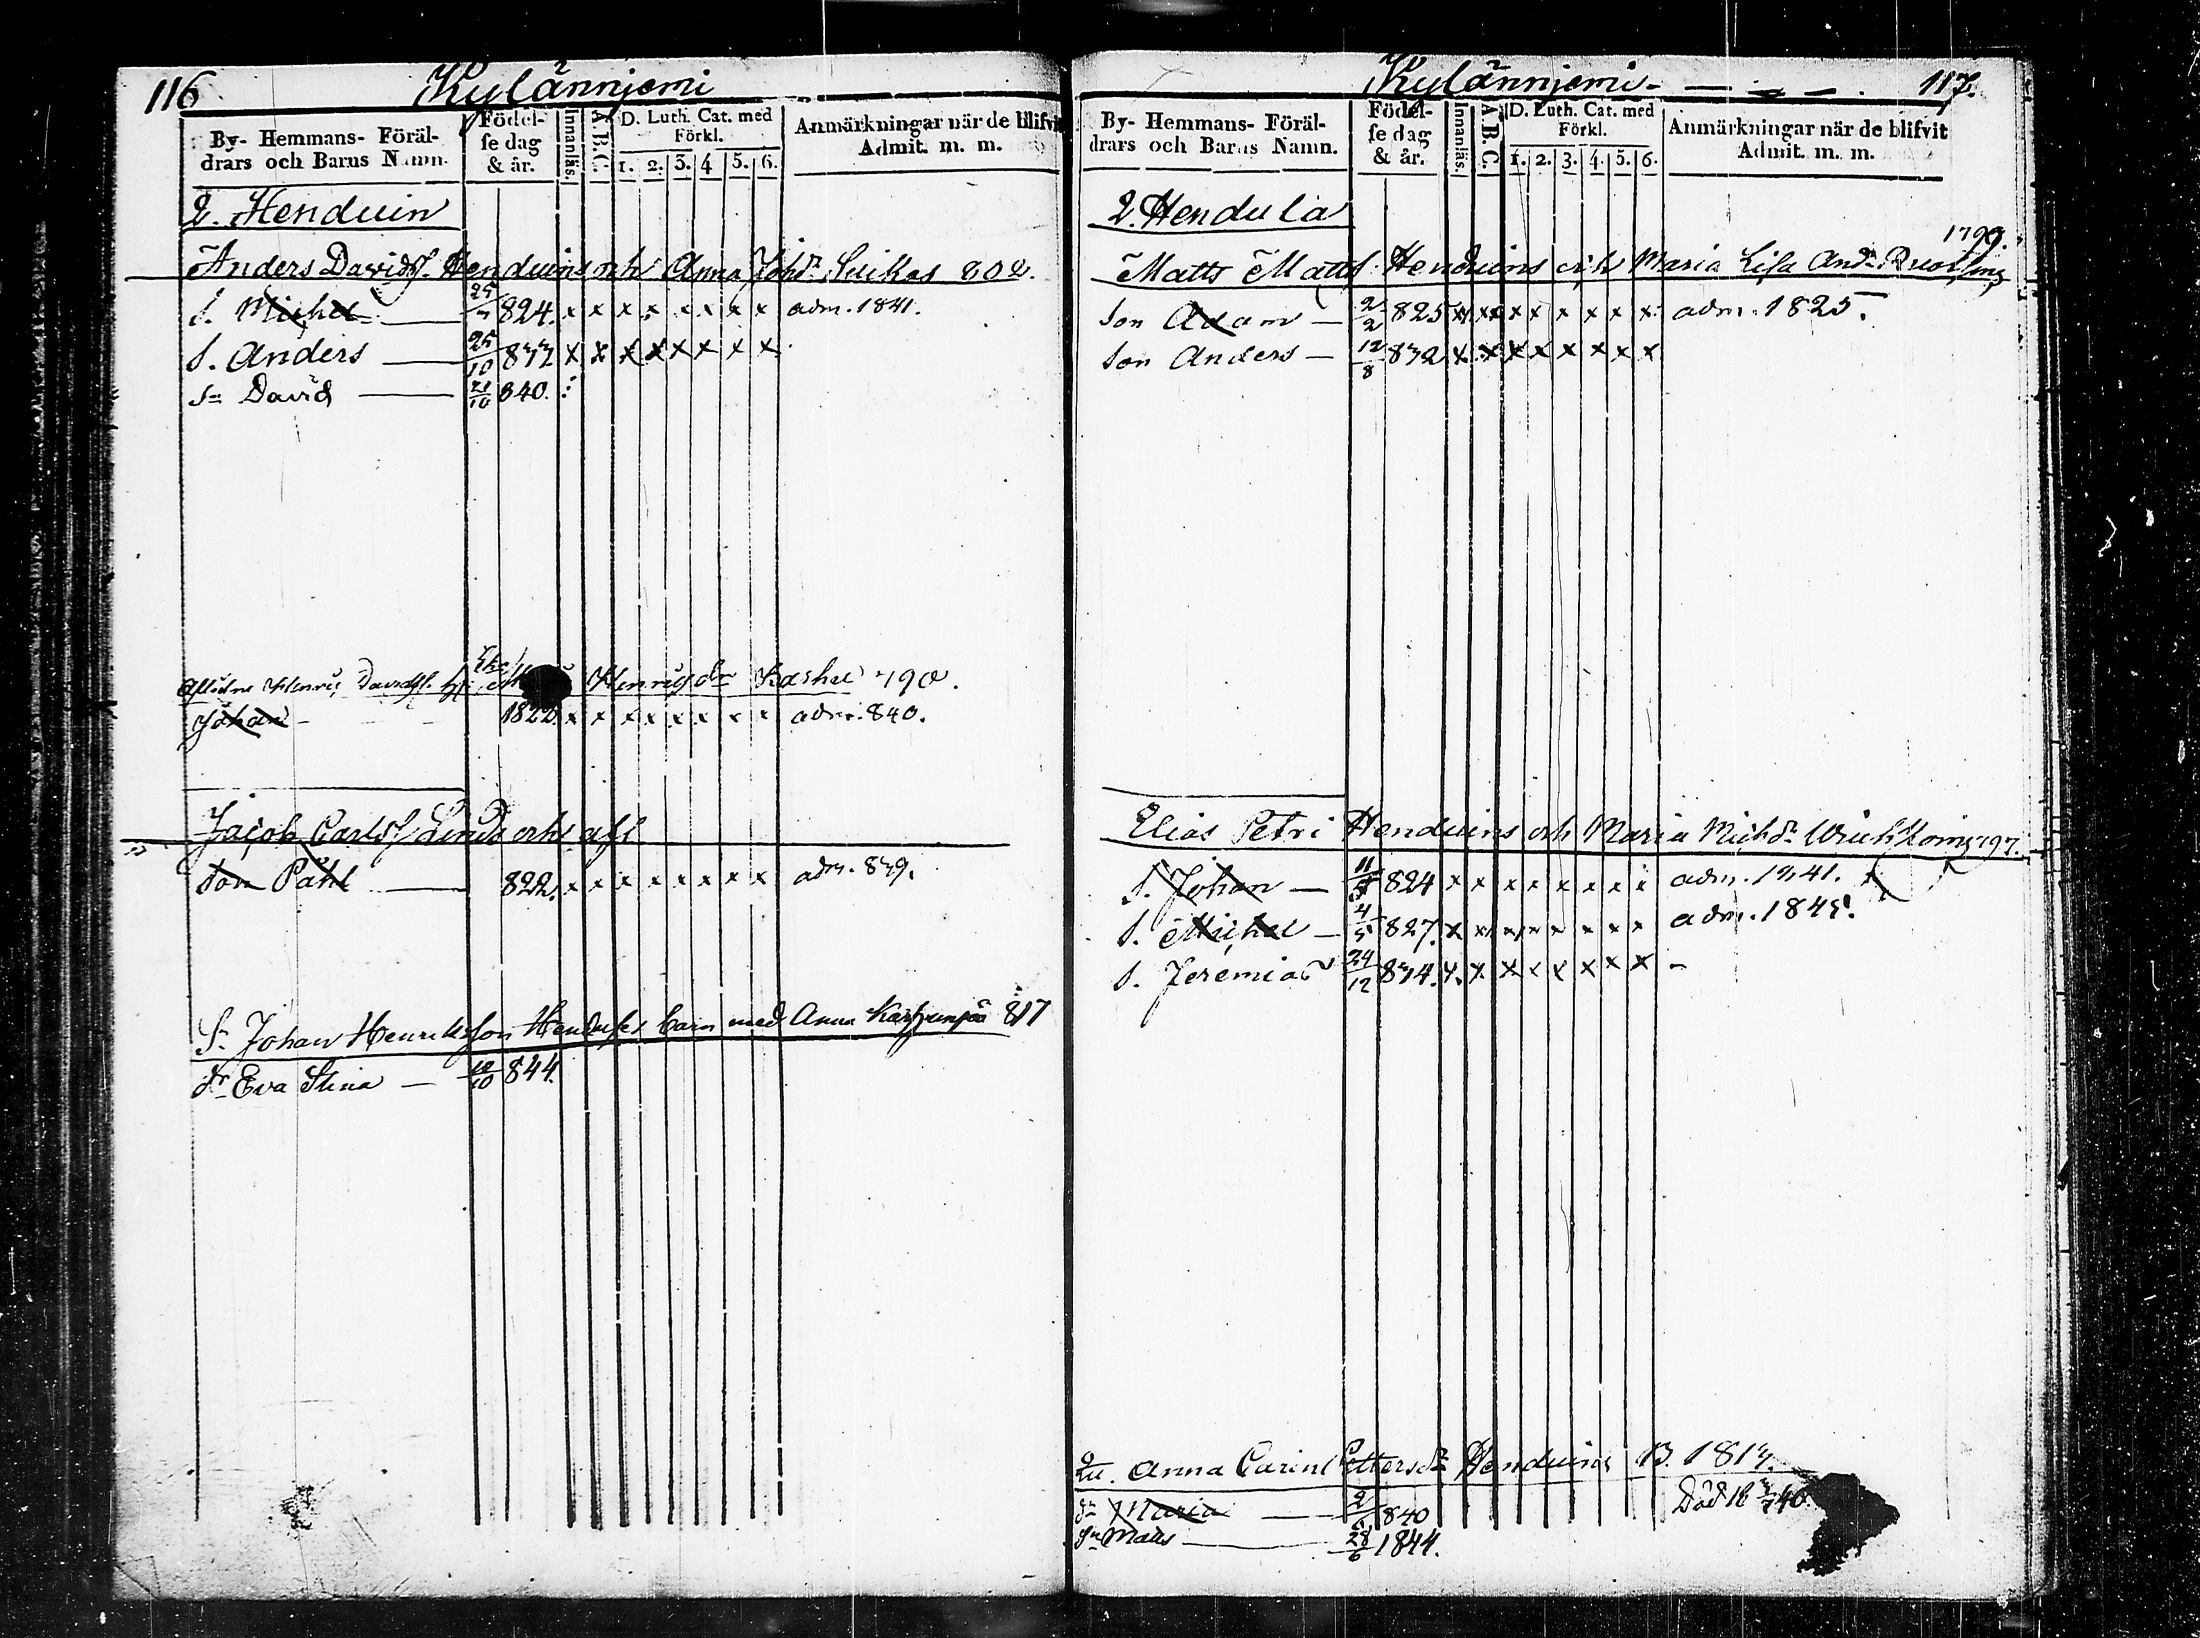 116 Kylänniemi
By- Hemmans- Föräl-
drars och Barns Namn.
Födel-
se dag
& år.
Innanläs.
A.B.C.
D. Luth. Cat. med
Förkl.
1. 2. 3. 4 5. 6.
Anmärkningar när de blifvit
Admit. m. m.
2. Henduin
Anders Davidss. Henduins och Anna Johdr. Suikas 802.
s. Michel 824. x x x x x x x x adm. 1841.
s. Anders 25/10 833 x x x x x x x x
sn David 21/10 840.
Aflidne Henric Davidss. Enk. Henrigdr 790.
Johan 1822 x x x x x x x x adm. 840.
Jacob Carlss. Linds och afl
son Påhl 822. x x x x x x x x adm. 839.
Sn. Johan Henriksson barn med Anna 817
dr Eva Stina 12/10 844.
Kylänniemi 117.
By- Hemmans- Föräl-
drars och Barns Namn.
Födel-
se dag
& år.
Innanläs.
A.B.C.
D. Luth. Cat. med
Förkl.
1. 2. 3. 4. 5. 6.
Anmärkningar när de blifvit
Admit. m. m.
2. Hendula
1799.
Matts Matts. Henduins och Maria Lisa Andr.
son Adam 2/2 825 x x x x x x x x adm. 1825.
son Anders 12/8 832 x x x x x x x x
Elias Petri Henduins och Maria Michdr. 797.
s. Johan 824 x x x x x x x x adm. 1841.
s. Michel 4/5 827. x x x x x x x x adm. 1845.
s. Jeremias 24/12 834. x x x x x x x x
Qu. Anna Carin Pettersdr Henduins 1813.
dr Maria 840 Död
sn Matts 28/6 1844.